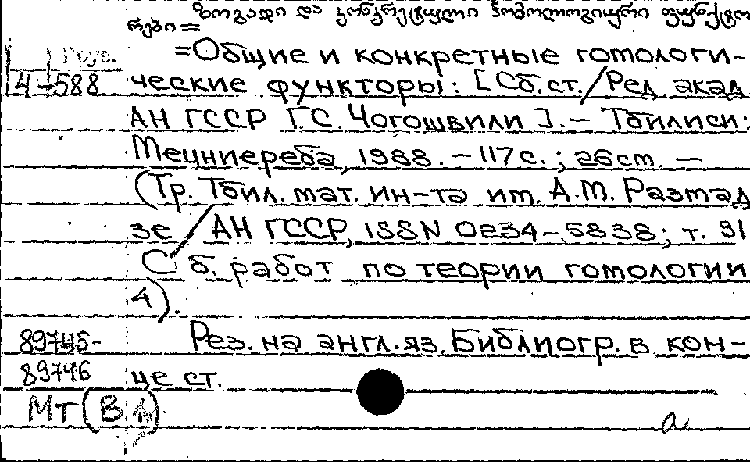 ზოგადი და კონკრეტული ჰომოლოგიური ფუნქტო
რები=
=Общие и конкретные гомологи-
4-588 ческие функторы: [Сб.ст./Ред. акад.
АН ГССР Г.С. Чогошвили]. – Тбилиси:
Мецниереба, 1988. – 117с.; 26см. –
(Тр. Тбил. мат. ин-та им. А.М. Размад
зе / АН ГССР, ISSN 0234-5838; т. 91
Сб. работ по теории гомологии
4).
89745- Рез. на англ. яз. Библиогр. в кон-
89746 це ст.
МТ (В.
а